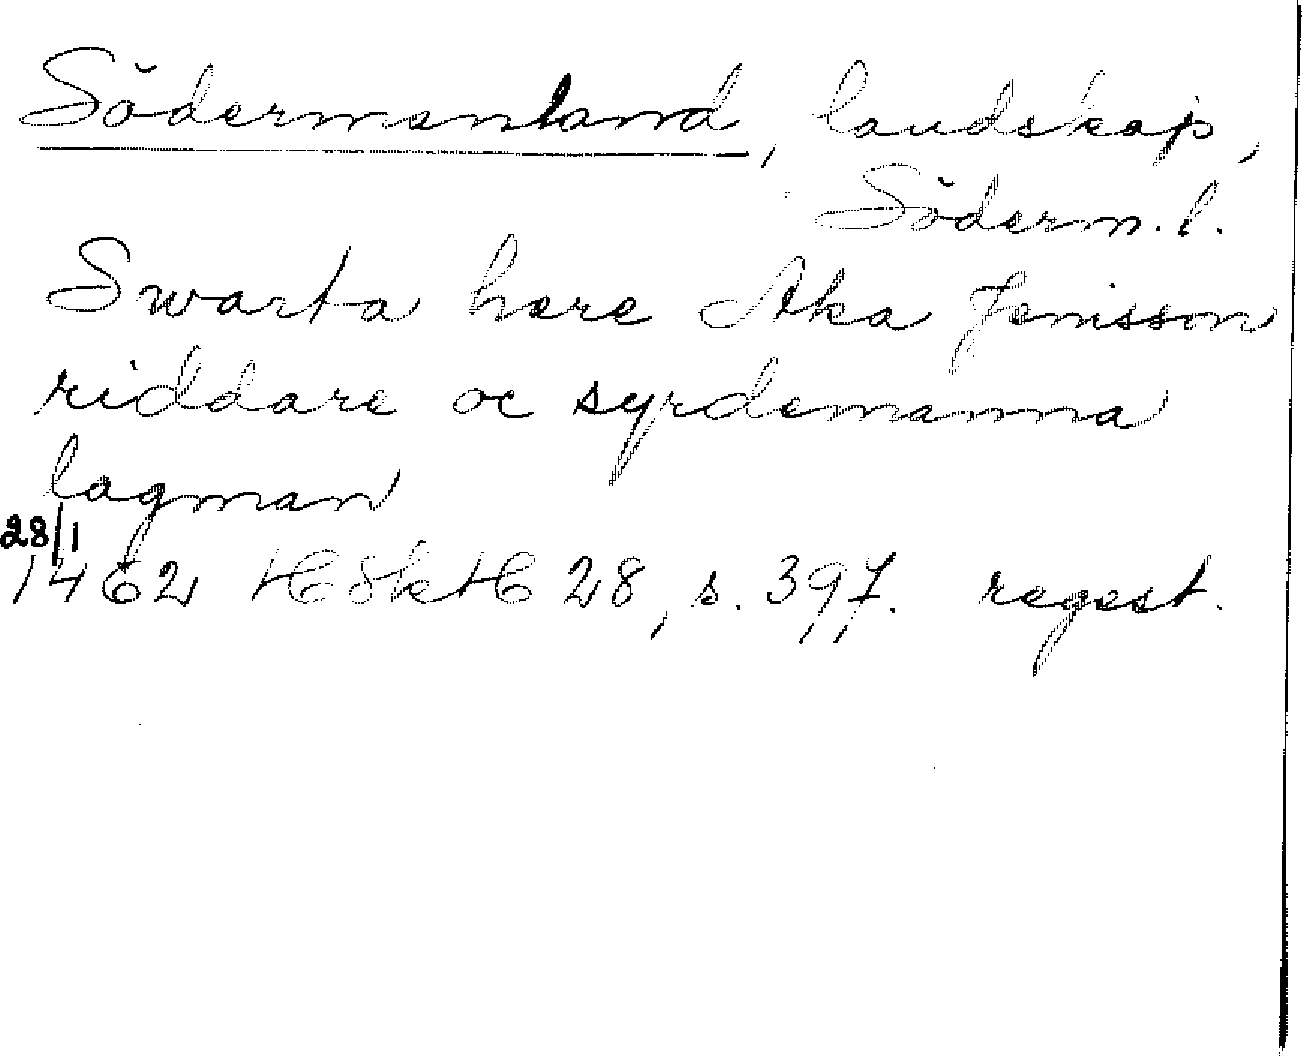 Södermanland, landskap,
Söderm. l.
Swarta here Aka Jensson
riddare oc syrdemanna
lagman
28/1
1462 HSkH 28, s. 397. regest.